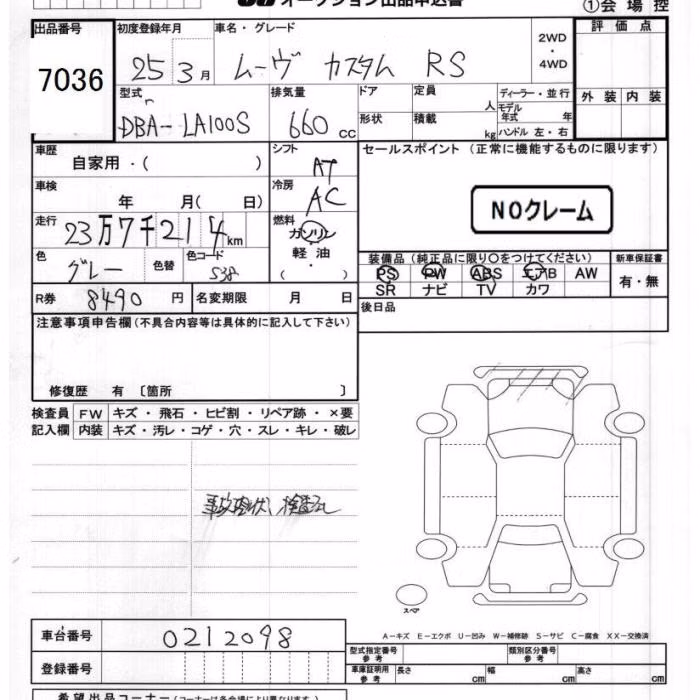 オークション出品申込書
①会場控
出品番号 初度登録年月 車名・グレード 評価点
7036 25 3月 ムーヴ カスタム RS 2WD ・ 4WD
外装 内装
型式 排気量 ドア 定員 人 ディーラー・並行
DBA-LA100S 660cc 形状 積載 kg モデル年式 年
ハンドル 左・右
車歴 シフト セールスポイント(正常に機能するものに限ります)
自家用・( ) AT
車検 冷房
年 月( 日) AC NOクレーム
走行 燃料
23万7千214km ガソリン・軽油・( )
色 色替 色コード 装備品(純正品に限り○をつけてください) 新車保証書
グレー PS PW ABS エアB AW 有・無
SR ナビ TV カワ
R券 8490円 名変期限 月 日 後日品
注意事項申告欄(不具合内容等は具体的に記入して下さい)
修復歴 有 〔箇所 〕
検査員 FW キズ・飛石・ヒビ割・リペア跡・×要
記入欄 内装 キズ・汚レ・コゲ・穴・スレ・キレ・破レ
スペア
A-キズ E-エクボ U-凹み W-補修跡 S-サビ C-腐食 XX-交換済
車台番号 0212098
型式指定番号 参考 類別区分番号 参考
登録番号 車庫証明用 参考 長さ cm 幅 cm 高さ cm
希望出品コーナー(コーナーは各会場により異なります)